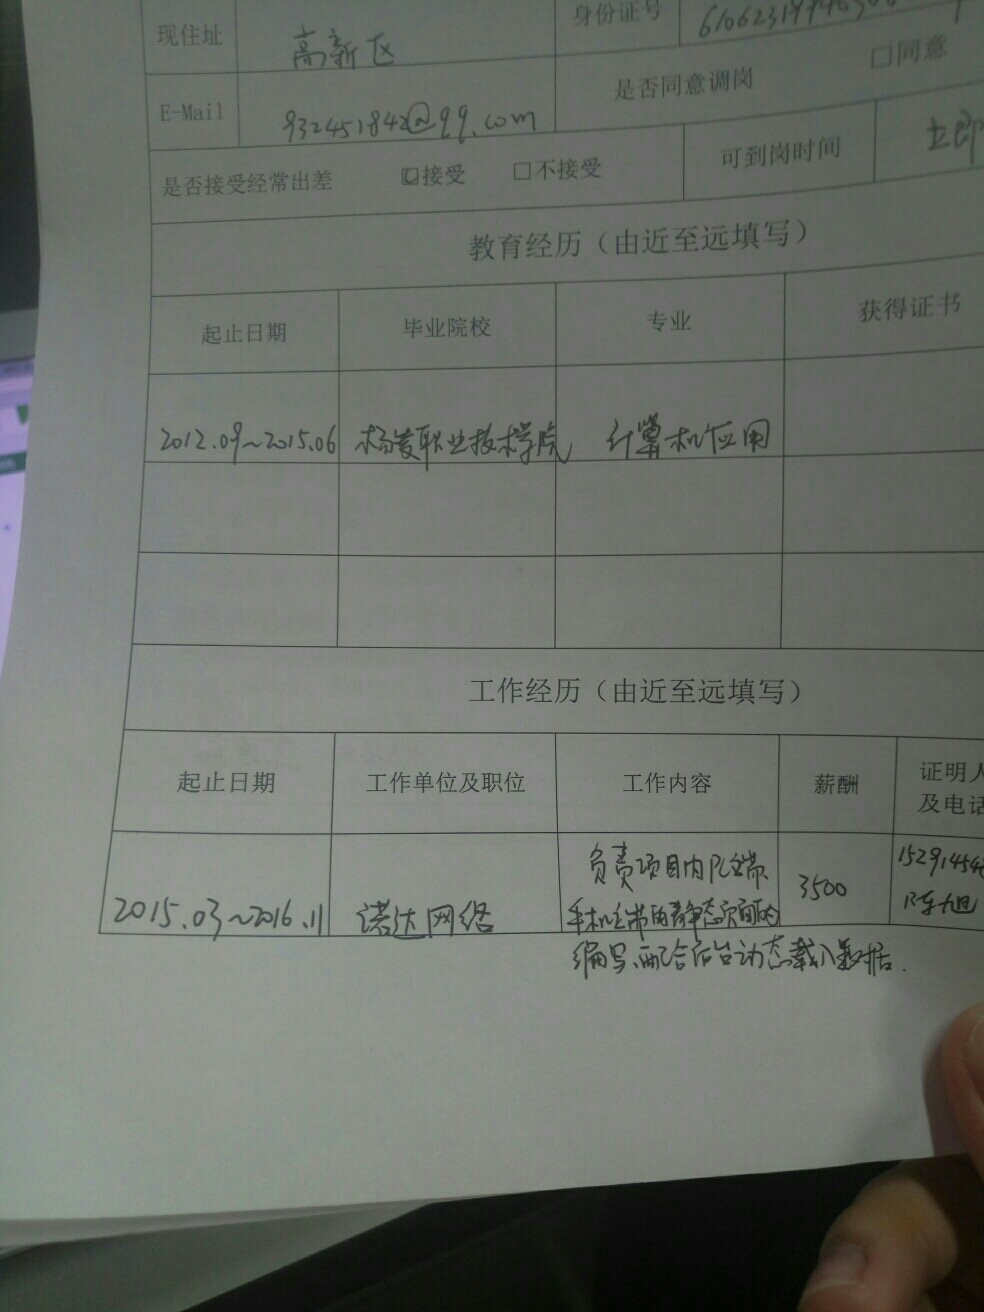 现住址 高新区 身份证号
E-Mail 932451842@qq.com 是否同意调岗 □同意
是否接受经常出差 ☑接受 □不接受 可到岗时间 立即
教育经历（由近至远填写）
起止日期 毕业院校 专业 获得证书
2012.09~2015.06 杨凌职业技术学院 计算机应用
工作经历（由近至远填写）
起止日期 工作单位及职位 工作内容 薪酬 证明人
及电话
2015.03~2016.11 诺达网络 负责项目内PC端、 3500 1529145
手机端的静态页面的 陈旭
编写、配合后台动态载入数据.